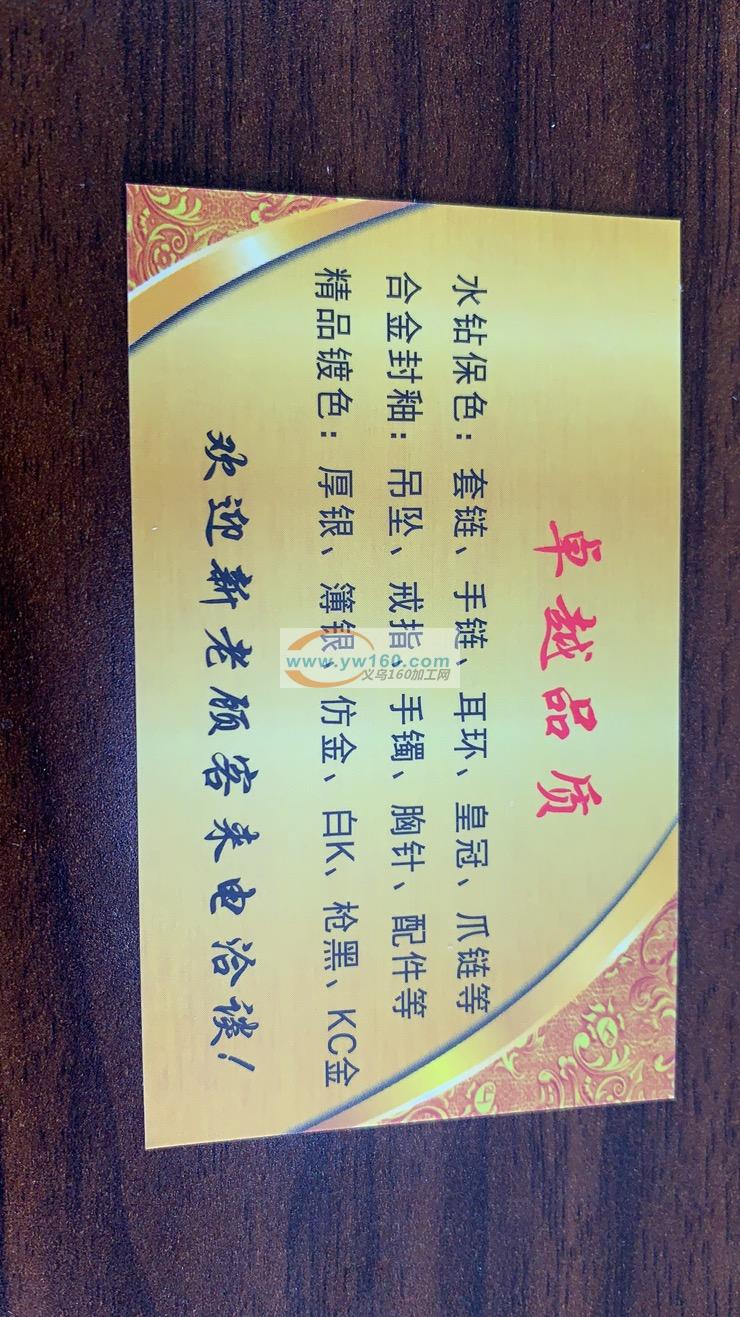 卓越品质
水钻保色：套链、手链、耳环、皇冠、爪链等
合金封釉：吊坠、戒指、手镯、胸针、配件等
精品镀色：厚银、簿银、仿金、白K、枪黑、KC金
欢迎新老顾客来电洽谈！
www.yw160.com
义乌160加工网